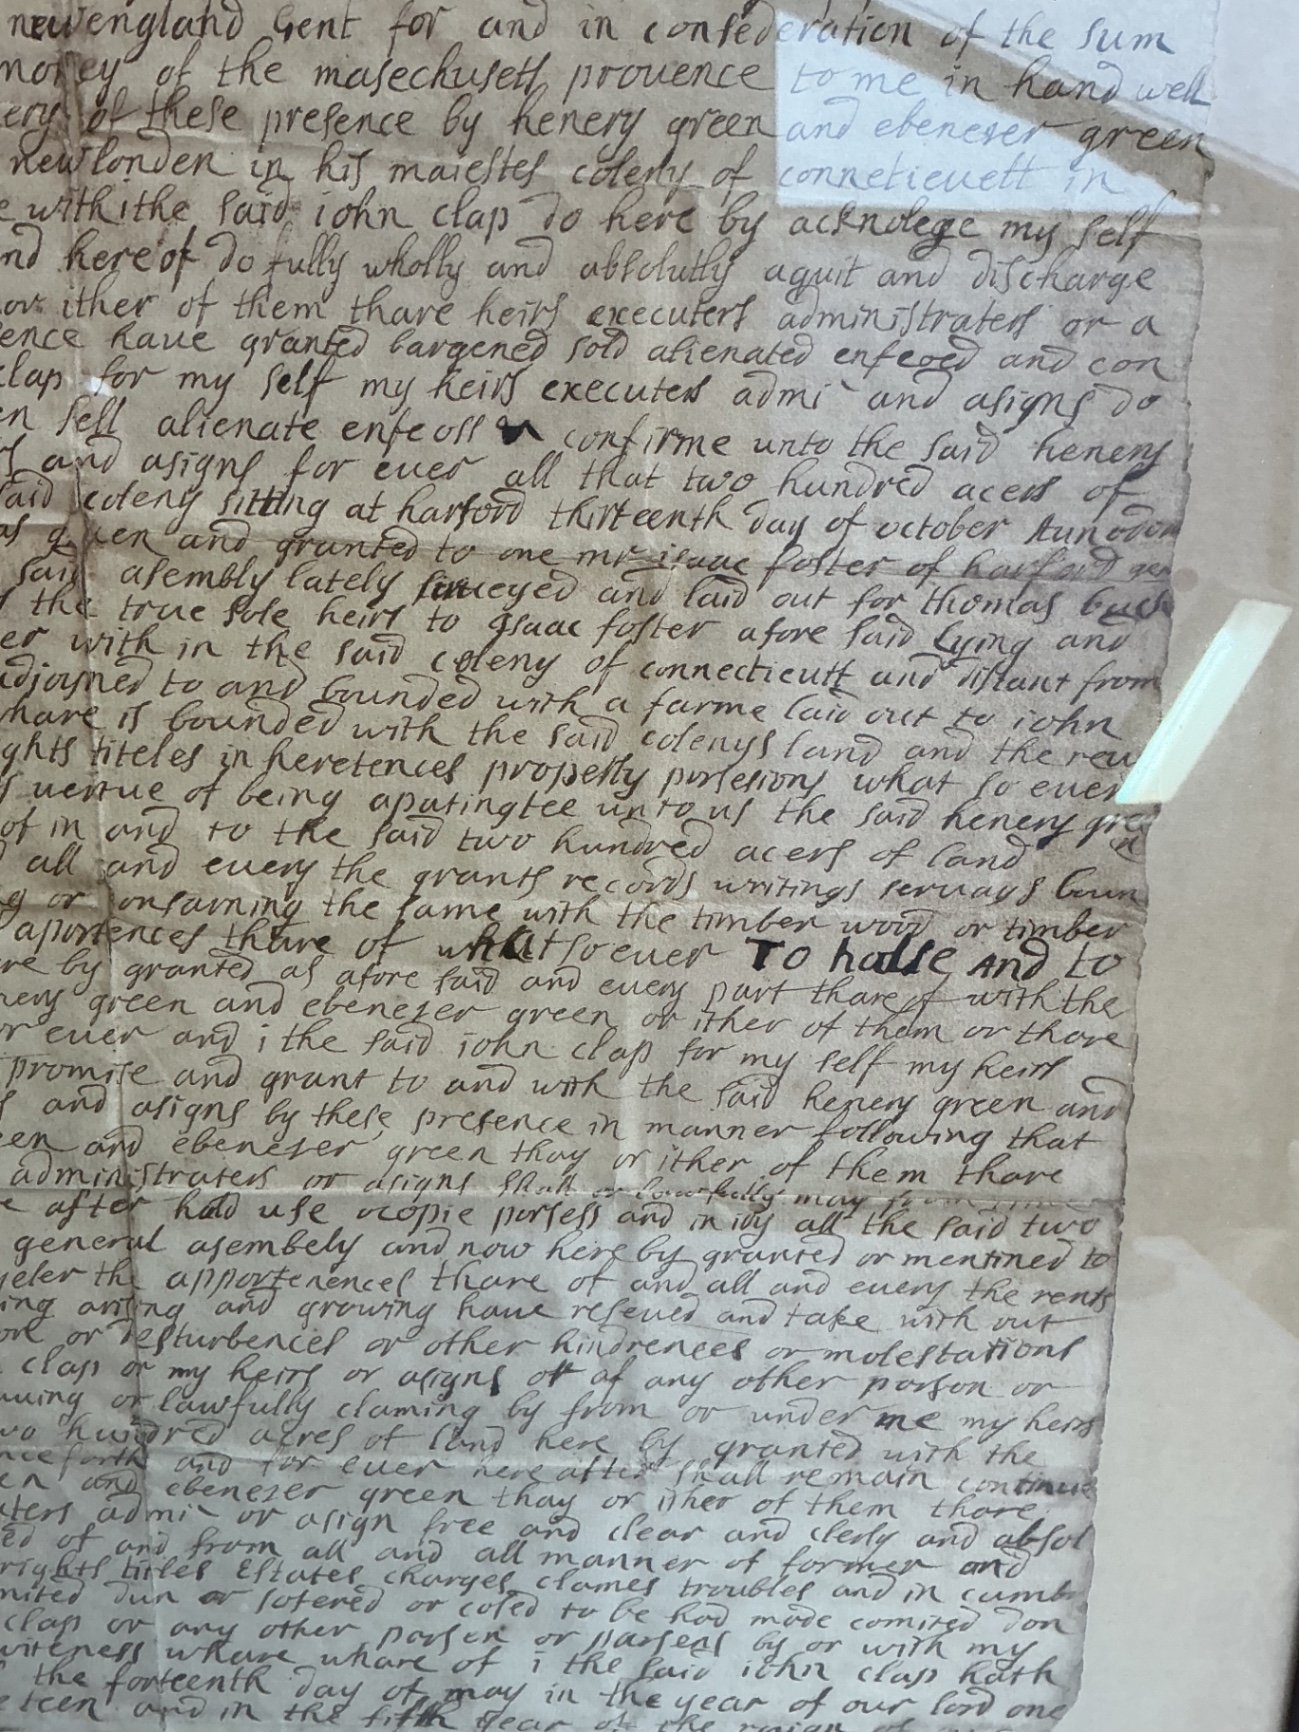 newengland Gent for and in consederation of the sum
money of the masechusets prouence to me in hand well
ery of these presence by henery green and ebenezer green
newlonden in his maiestes coleny of connetieuett in
e withithe said iohn clap do here by acknolege my self
nd here of do fully wholly and absolutly aquit and discharge
or ither of them thare heirs executers administraters or a
ence haue granted bargened sold alienated enfeoed and con
clap for my self my heirs executers admi and asigns do
en sell alienate enfeoff confirme unto the said henery
rs and asigns for euer all that two hundred acers of
said coleny sitting at harford thirteenth day of october Annodom
as giuen and granted to one mr isaac foster of harford gen
said asembly lately surueyed and laid out for thomas buck
the true sole heirs to Isaac foster afore said lying and
er with in the said coleny of connecticutt and distant from
adjoyned to and bounded with a farme laid out to iohn
hare is bounded with the said colenys land and the reu
ghts titeles in heretences property porsesions what so euer
uertue of being apatingtee unto us the said henery green
of in and to the said two hundred acers of land
all and euery the grants records writings seruays boun
g or consarning the same with the timber wood or timber
aportences thare of whatsoeuer To haue And to
re by granted as afore said and euery part thare of with the
nery green and ebenezer green or ither of them or thare
or euer and i the said iohn clap for my self my heirs
promise and grant to and with the said henery green and
s and asigns by these presence in manner following that
een and ebenezer green thay or ither of them thare
administraters or asigns shall or lawfully may from time
e after hald use ocopie porsess and in ioy all the said two
general asembely and now here by granted or mentined to
geler the apportenences thare of and all and euery the rents
ing arising and growing haue reseued and take with out
or desturbences or other hindrences or molestations
clap or my heirs or asigns or of any other parson or
auing or lawfully claming by from or under me my heirs
wo hundred acres of land here by granted with the
nceforth and for euer here after shall remain continue
en and ebenezer green thay or ither of them thare
uters admi or asign free and clear and clerly and absol
ed of and from all and all manner of former and
rights titles Estates charges clames troubles and in cumb
mited dun or sofered or cosed to be had made comited don
clap or any other parson or parsens by or with my
witeness whare whare of i the said iohn clap hath
the forteenth day of may in the year of our lord one
teen and in the fifth year of the raign of